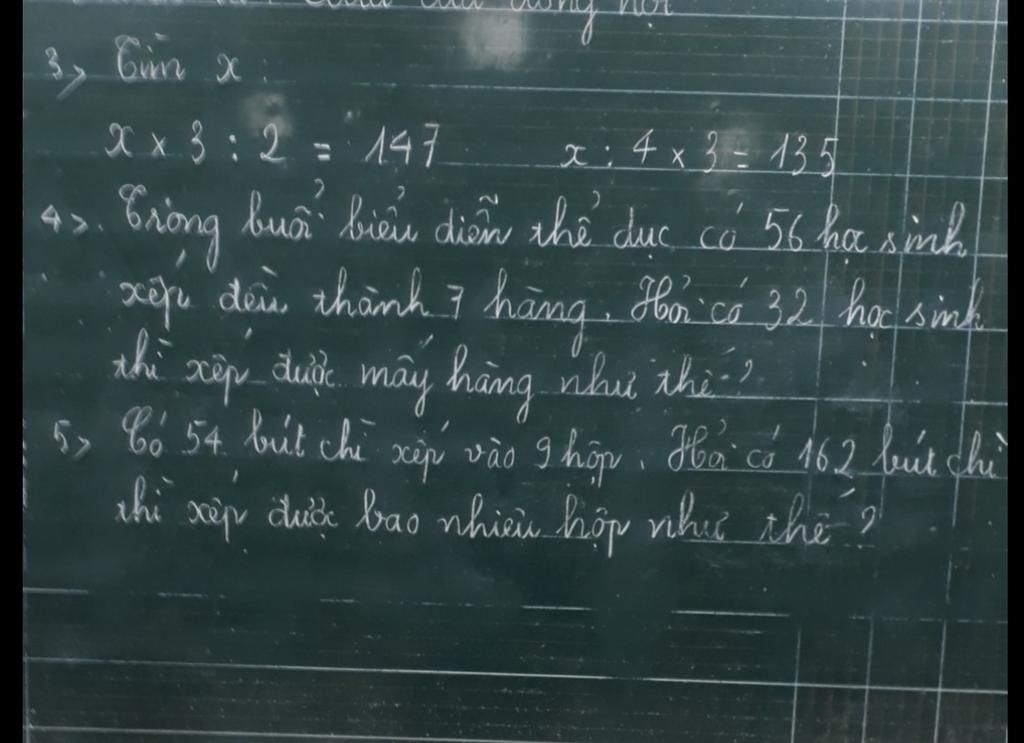 3> Tìm x :
x × 3 : 2 = 147 x : 4 × 3 = 135
4>. Trong buổi biểu diễn thể dục có 56 học sinh
xếp đều thành 7 hàng. Hỏi có 32 học sinh
thì xếp được mấy hàng như thế ?
5> Có 54 bút chì xếp vào 9 hộp. Hỏi có 162 bút chì
thì xếp được bao nhiêu hộp như thế ?